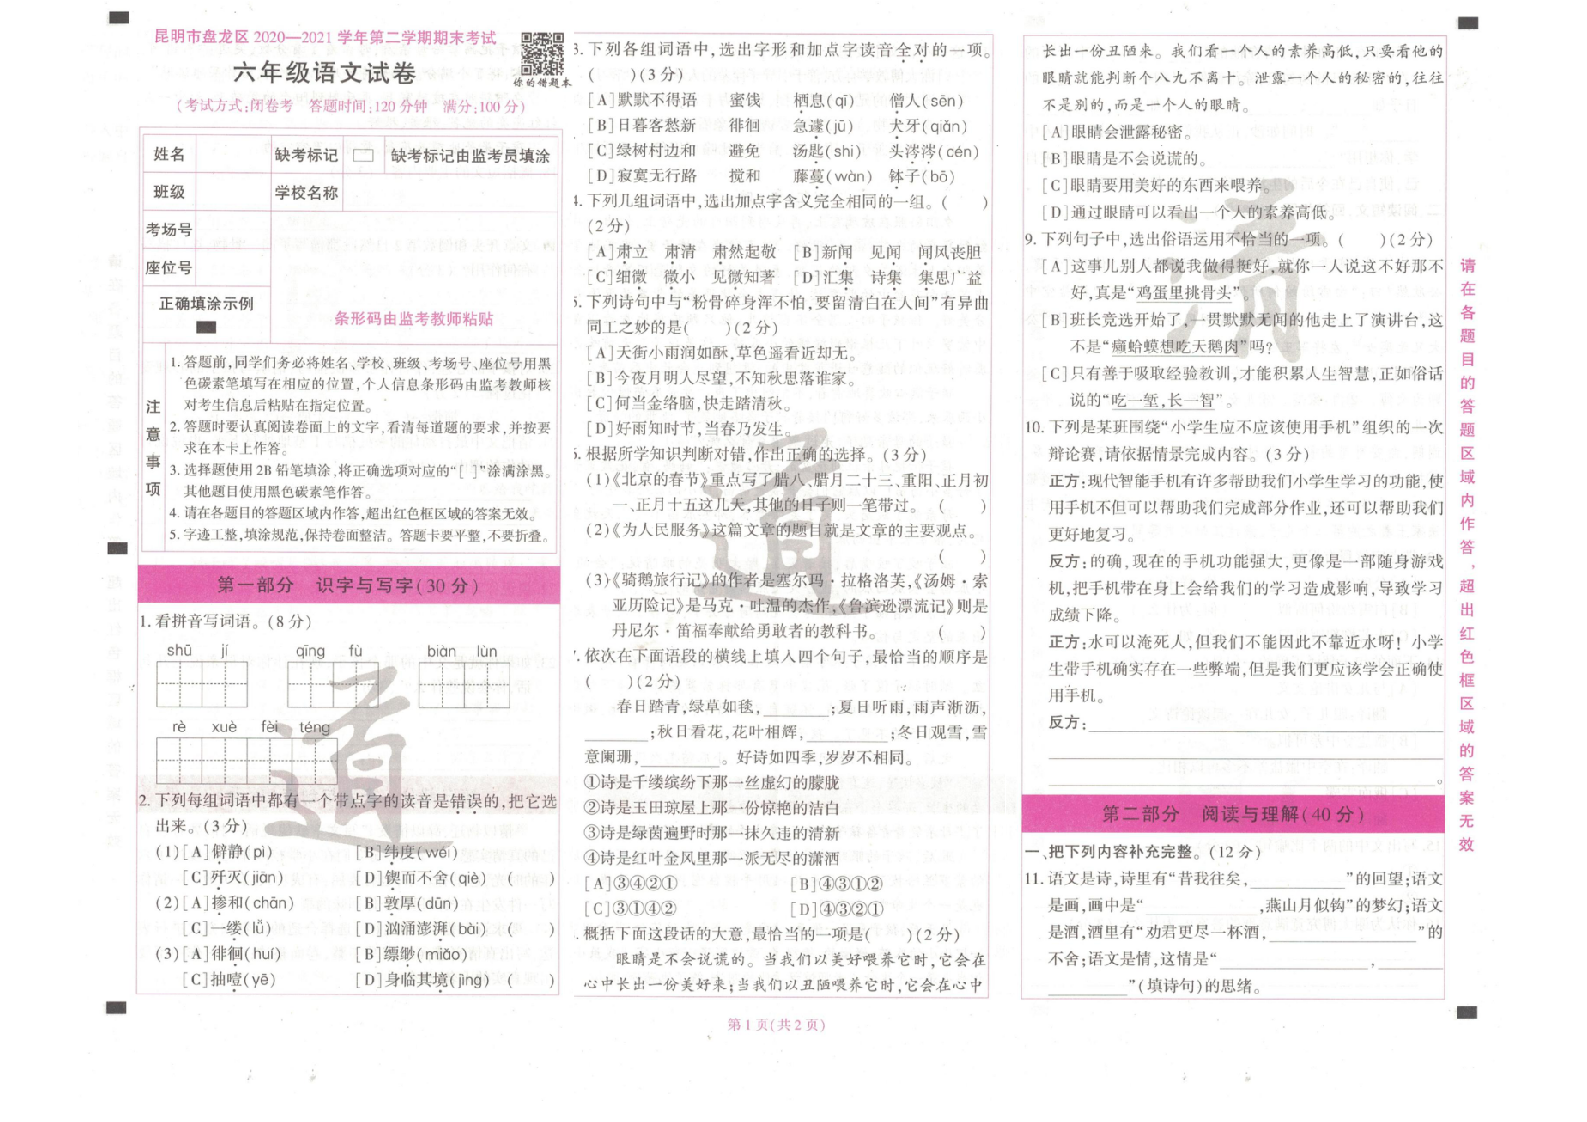 昆明市盘龙区 2020—2021 学年第二学期期末考试
六年级语文试卷
你的错题本
(考试方式:闭卷考 答题时间:120 分钟 满分:100 分)
姓名
缺考标记
缺考标记由监考员填涂
班级
学校名称
考场号
座位号
正确填涂示例
条形码由监考教师粘贴
注意事项
1. 答题前,同学们务必将姓名、学校、班级、考场号、座位号用黑
色碳素笔填写在相应的位置,个人信息条形码由监考教师核
对考生信息后粘贴在指定位置。
2. 答题时要认真阅读卷面上的文字,看清每道题的要求,并按要
求在本卡上作答。
3. 选择题使用 2B 铅笔填涂,将正确选项对应的“[ ]”涂满涂黑。
其他题目使用黑色碳素笔作答。
4. 请在各题目的答题区域内作答,超出红色框区域的答案无效。
5. 字迹工整,填涂规范,保持卷面整洁。答题卡要平整,不要折叠。
第一部分 识字与写字(30 分)
1. 看拼音写词语。(8 分)
shū jí qīng fù biàn lùn
rè xuè fèi téng
2. 下列每组词语中都有一个带点字的读音是错误的,把它选
出来。(3 分)
(1)[A]僻静(pì) [B]纬度(wěi)
[C]歼灭(jiān) [D]锲而不舍(qiè) ( )
(2)[A]掺和(chān) [B]敦厚(dūn)
[C]一缕(lǚ) [D]汹涌澎湃(bài) ( )
(3)[A]徘徊(huí) [B]缥缈(miǎo)
[C]抽噎(yē) [D]身临其境(jìng) ( )
3. 下列各组词语中,选出字形和加点字读音全对的一项。
( )(3 分)
[A]默默不得语 蜜饯 栖息(qī) 僧人(sēn)
[B]日暮客愁新 徘徊 急遽(jū) 犬牙(qiǎn)
[C]绿树村边和 避免 汤匙(shi) 头涔涔(cén)
[D]寂寞无行路 搅和 藤蔓(wàn) 钵子(bō)
4. 下列几组词语中,选出加点字含义完全相同的一组。( )
(2 分)
[A]肃立 肃清 肃然起敬 [B]新闻 见闻 闻风丧胆
[C]细微 微小 见微知著 [D]汇集 诗集 集思广益
5. 下列诗句中与“粉骨碎身浑不怕,要留清白在人间”有异曲
同工之妙的是( )(2 分)
[A]天街小雨润如酥,草色遥看近却无。
[B]今夜月明人尽望,不知秋思落谁家。
[C]何当金络脑,快走踏清秋。
[D]好雨知时节,当春乃发生。
6. 根据所学知识判断对错,作出正确的选择。(3 分)
(1)《北京的春节》重点写了腊八、腊月二十三、重阳、正月初
一、正月十五这几天,其他的日子则一笔带过。( )
(2)《为人民服务》这篇文章的题目就是文章的主要观点。
( )
(3)《骑鹅旅行记》的作者是塞尔玛·拉格洛芙,《汤姆·索
亚历险记》是马克·吐温的杰作,《鲁滨逊漂流记》则是
丹尼尔·笛福奉献给勇敢者的教科书。 ( )
7. 依次在下面语段的横线上填入四个句子,最恰当的顺序是
( )(2 分)
春日踏青,绿草如毯,________;夏日听雨,雨声淅沥,
________;秋日看花,花叶相辉,________;冬日观雪,雪
意阑珊,________。好诗如四季,岁岁不相同。
①诗是千缕缤纷下那一丝虚幻的朦胧
②诗是玉田琼屋上那一份惊艳的洁白
③诗是绿茵遍野时那一抹久违的清新
④诗是红叶金风里那一派无尽的潇洒
[A]③④②① [B]④③①②
[C]③①④② [D]④③②①
. 概括下面这段话的大意,最恰当的一项是( )(2 分)
眼睛是不会说谎的。当我们以美好喂养它时,它会在
心中长出一份美好来;当我们以丑陋喂养它时,它会在心中
长出一份丑陋来。我们看一个人的素养高低,只要看他的
眼睛就能判断个八九不离十。泄露一个人的秘密的,往往
不是别的,而是一个人的眼睛。
[A]眼睛会泄露秘密。
[B]眼睛是不会说谎的。
[C]眼睛要用美好的东西来喂养。
[D]通过眼睛可以看出一个人的素养高低。
9. 下列句子中,选出俗语运用不恰当的一项。( )(2 分)
[A]这事儿别人都说我做得挺好,就你一人说这不好那不
好,真是“鸡蛋里挑骨头”。
[B]班长竞选开始了,一贯默默无闻的他走上了演讲台,这
不是“癞蛤蟆想吃天鹅肉”吗?
[C]只有善于吸取经验教训,才能积累人生智慧,正如俗话
说的“吃一堑,长一智”。
10. 下列是某班围绕“小学生应不应该使用手机”组织的一次
辩论赛,请依据情景完成内容。(3 分)
正方:现代智能手机有许多帮助我们小学生学习的功能,使
用手机不但可以帮助我们完成部分作业,还可以帮助我们
更好地复习。
反方:的确,现在的手机功能强大,更像是一部随身游戏
机,把手机带在身上会给我们的学习造成影响,导致学习
成绩下降。
正方:水可以淹死人,但我们不能因此不靠近水呀!小学
生带手机确实存在一些弊端,但是我们更应该学会正确使
用手机。
反方:________
________。
第二部分 阅读与理解(40 分)
一、把下列内容补充完整。(12 分)
11. 语文是诗,诗里有“昔我往矣,________”的回望;语文
是画,画中是“________,燕山月似钩”的梦幻;语文
是酒,酒里有“劝君更尽一杯酒,________”的
不舍;语文是情,这情是“________,________
________”(填诗句)的思绪。
请在各题目的答题区域内作答,超出红色框区域的答案无效
道
道
清
第 1 页(共 2 页)